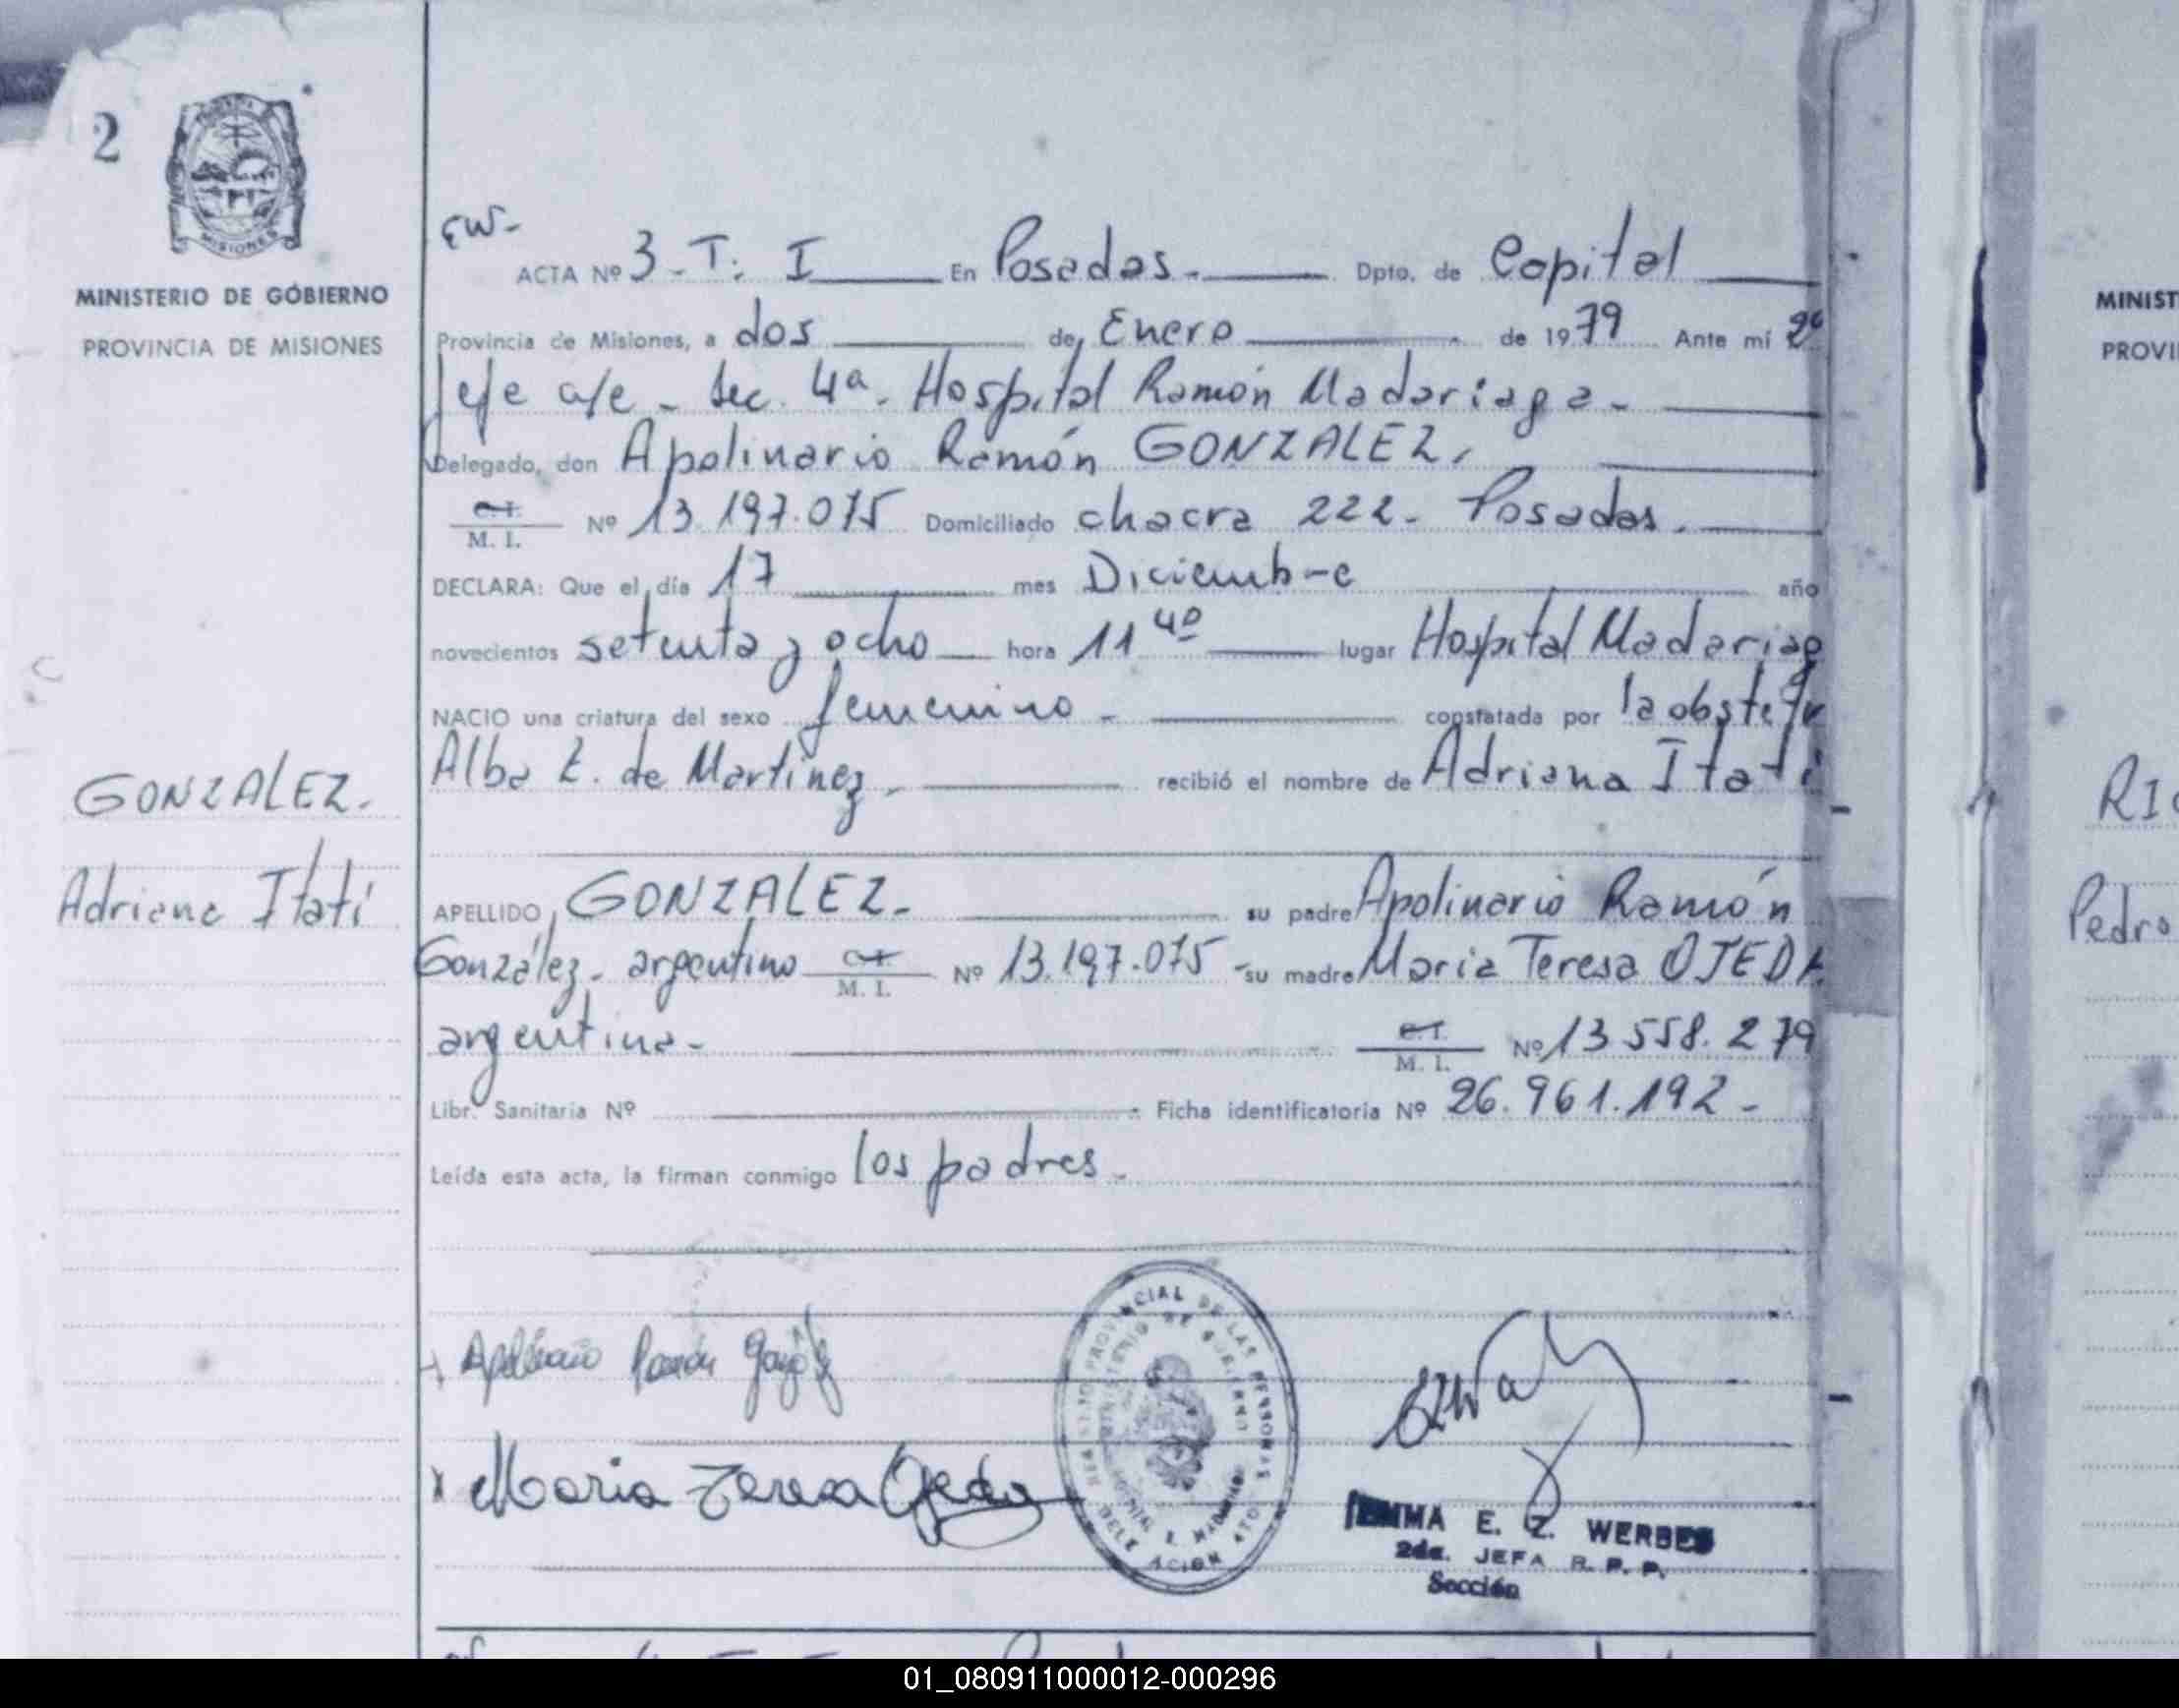 2
MISIONES
MINISTERIO DE GOBIERNO
PROVINCIA DE MISIONES
GONZALEZ.
Adriana Itatí
EW-
ACTA Nº 3-T: I En Posadas.- Dpto. de Capital
Provincia de Misiones, a dos de Enero de 1979 Ante mí 2º
Jefe a/e - Sec. 4ª. Hospital Ramón Madariaga-
Delegado, don Apolinario Ramón GONZALEZ,
C.I.
M. I. Nº 13.197.075 Domiciliado chacra 222- Posadas.
DECLARA: Que el día 17 mes Diciembre año
novecientos setenta y ocho hora 11 40 lugar Hospital Madariag
NACIO una criatura del sexo femenino - constatada por la obstetr
Alba E. de Martínez, recibió el nombre de Adriana Itatí
APELLIDO GONZALEZ- su padre Apolinario Ramón
González- argentino C.I. M. I. Nº 13.197.075 - su madre María Teresa OJEDA
argentina- C.I. M. I. Nº 13.558.279
Libr. Sanitaria Nº Ficha identificatoria Nº 26.961.192-
Leída esta acta, la firman conmigo los padres-
Apolinario Ramón González
x Maria Teresa Ojeda
REGISTRO PROVINCIAL DE LAS PERSONAS
MINISTERIO DE GOBIERNO
HOSPITAL R. MADARIAGA
DELEGACION 4TO.
EMMA E. Z. WERBES
2da. JEFA R. P. P.
Sección
MINIST
PROVI
RI
Pedro
01_080911000012-000296